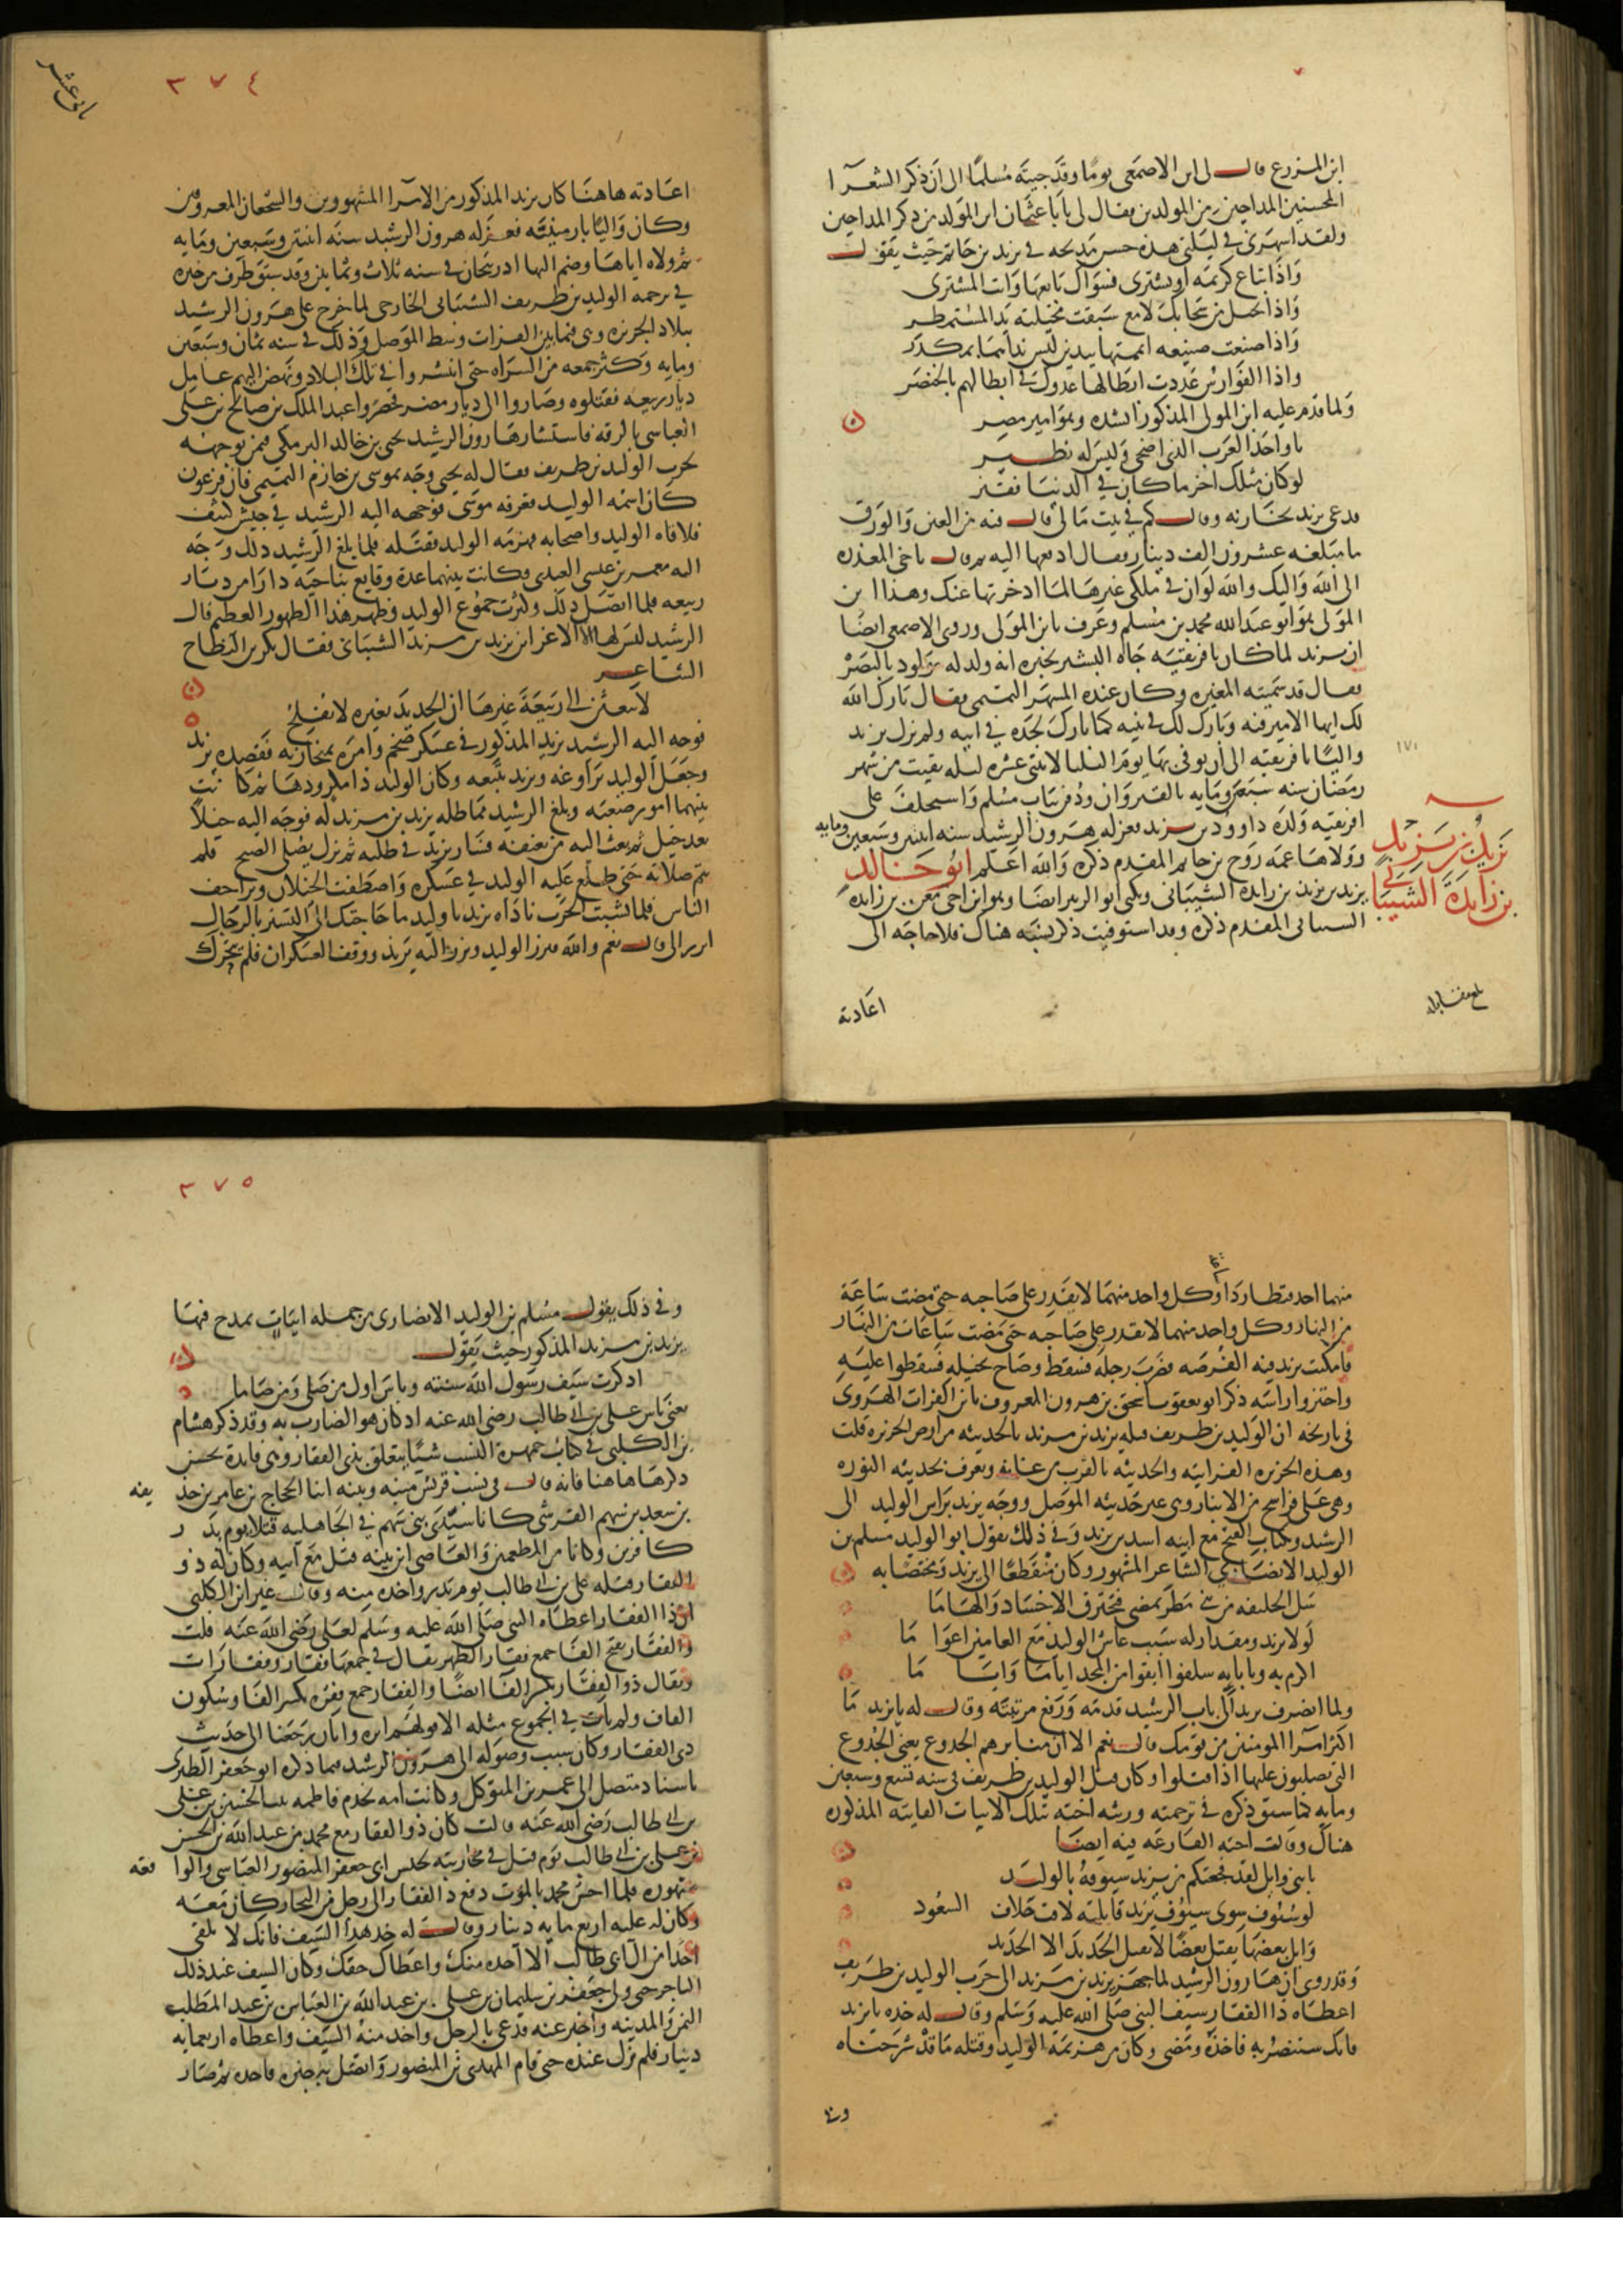 ابن المزرع قال لى ابن الاصمعى يوما وقد جيته مسلما الى ان ذكر الشعرآ
المحسنين المداحين من المولدين فقال لى يا ابا عثمان ابن المولد من ذكر المداحين
ولقد اسهرنى فى ليلتى هذه حسن مديحه فى يزيد بن حاتم حيث يقول
واذا تباع كريمه او يشترى فسواك بايعها وانت المشترى
واذا تخيل من سحابك لامع سبقت مخيلته يد المستمطر
واذا صنعت صنيعه اتممتها بيدين ليس نداهما بمكدر
واذا الفوارس عددت ابطالها عدوك فى ابطالهم بالخنصر
ولما قدم عليه ابن المولى المذكور انشده وهو امير مصر
يا واحد العرب الذى اضحى وليس له نظير
لو كان مثلك اخر ما كان فى الدنيا فقير
فدعى يزيد بخازنه وقال كم فى بيت مالى قال فيه من العين والورق
ما مبلغه عشرون الف دينار فقال ادفعها اليه ثم قال يا اخى المعذره
الى الله واليك والله لو ان فى ملكى غيرها لما ادخرتها عنك وهذا ابن
المولى هو ابو عبد الله محمد بن مسلم وعرف بابن المولى وروى الاصمعى ايضا
ان يزيد لما كان بافريقيه جاه البشير يخبره انه ولد له مولود بالبصره
فقال قد سميته المغيره وكان عنده المسهر التميمى فقال بارك الله
لك ايها الامير فيه وبارك لك فى بنيه كما بارك لجده فى ابيه ولم يزل يزيد
واليا بافريقيه الى ان توفى بها يوم الثلثا لاثنتى عشره ليله بقيت من شهر
رمضان سنه سبعين ومايه بالقيروان ودفن بباب مسلم واستخلف على
افريقيه ولده داوود بن يزيد فعزله هرون الرشيد سنه اثنتين وسبعين ومايه
وولاها عمه روح بن حاتم المقدم ذكره والله اعلم ابو خالد
يزيد بن مزيد بن زايده الشيبانى ويكنى ابو الزبير ايضا وهو ابن اخى معن بن زايده
الشيبانى المقدم ذكره وقد استوفيت ذكر نسبه هناك فلا حاجه الى
يزيد بن مزيد
بن زايدة الشيبانى
١٧١
بلغ مقابله
اعادته
٣٧٤
اعادته هاهنا كان يزيد المذكور من الامرآ المشهورين والشجعان المعروفين
وكان واليا بارمينيه فعزله هرون الرشيد سنه اثنتين وسبعين ومايه
ثم ولاه اياها وضم اليها ادربيجان فى سنه ثلاث وثمانين وقد سبق طرف من خبره
فى ترجمه الوليد بن طريف الشيبانى الخارجى لما خرج على هرون الرشيد
ببلاد الجزيره وهى فيما بين الفرات وشط الموصل وذلك فى سنه ثمان وسبعين
ومايه وكثر جمعه من الشراه حتى انتشروا فى تلك البلاد ونهض اليهم عامل
ديار ربيعه فقتلوه وصاروا الى ديار مضر فحصروا عبد الملك بن صالح بن على
العباسى بالرقه فاستشار هارون الرشيد يحيى بن خالد البرمكى فيمن يوجهه
لحرب الوليد بن طريف فقال له يحيى وجه بموسى بن خازم التميمى فان فرعون
كان اسمه الوليد فغرقه موسى فوجهه اليه الرشيد فى جيش كثيف
فلاقاه الوليد واصحابه فهزمه الوليد فقتله فلما بلغ الرشيد ذلك وجه
اليه معمر بن عيسى العبدى وكانت بينهما عدة وقايع بناحيه دارا من ديار
ربيعه فلما اتصل ذلك وكثرت جموع الوليد وظهر هذا الظهور العظيم قال
الرشيد ليس لها الا الاعرابى يزيد بن مزيد الشيبانى فقال بكر بن النطاح
الشاعر
لا تبعثن الى ربيعة غيرها ان الحديد بغيره لا يفلح
فوجه اليه الرشيد يزيد المذكور فى عسكر ضخم وامره بمحاربته فقصده يزيد
وجعل الوليد يراوغه ويزيد يتبعه وكان الوليد ذا مكر ودها ثم كانت
بينهما امور صعبه وبلغ الرشيد مماطله يزيد بن مزيد له فوجه اليه خيلا
بعد خيل ثم بعث اليه من يعنفه فسار يزيد فى طلبه ثم نزل يصلى الصبح فلم
يتم صلاته حتى طلع عليه الوليد فى عسكره واصطفت الخيلان وتزاحف
الناس فلما نشبت الحرب ناداه يزيد يا وليد ما حاجتك الى التستر بالرجال
ابرز الى قال نعم والله فبرز الوليد وبرز اليه يزيد ووقف العسكران فلم يتحرك
منهما احد فتطاردا وكل واحد منهما لا يقدر على صاحبه حتى مضت ساعة
من النهار وكل واحد منهما لا يقدر على صاحبه حتى مضت ساعات من النهار
فامكنت يزيد فيه الفرصه فضرب رجله فسقط وصاح بخيله فسقطوا عليه
واحتزوا راسه ذكر ابو يعقوب اسحق بن هرون المعروف بابن الفرات الهروى
فى تاريخه ان الوليد بن طريف قتله يزيد بن مزيد بالحديثه من ارض الجزيره قلت
وهذه الجزيره الفراتيه والحديثه بالقرب من عانه وتعرف بحديثه النوره
وهى على فراسخ من الانبار وهى غير حديثه الموصل ووجه يزيد براس الوليد الى
الرشيد وبكتاب الفتح مع ابنه اسد بن يزيد وفى ذلك يقول ابو الوليد مسلم بن
الوليد الانصارى الشاعر المشهور وكان منقطعا الى يزيد ومختصا به
سل الخليفه من بنى مطر يمضى فيخترق الاجساد والهاما
لولا يزيد ومقدار له سبب عاش الوليد مع العامين اعواما
اكرم به وباباء له سلفوا ابقوا من المجد اياما واياما
ولما انصرف يزيد الى باب الرشيد قدمه ورفع مرتبته وقال له يا يزيد ما
اكثر امرآ المومنين من قومك قال نعم الا ان منابرهم الجذوع يعنى الجذوع
التى يصلبون عليها اذا قتلوا وكان قتل الوليد بن طريف فى سنه تسع وسبعين
ومايه كما سبق ذكره فى ترجمته ورثته اخته بتلك الابيات الفايته المذكوره
هناك وقالت اخته الفارعه فيه ايضا
يا بنى وايل لقد فجعتكم من يزيد سيوفه بالوليد
لو سيوف سوى سيوف يزيد قابلته لاقت خلاف السعود
وايل بعضها يقتل بعضا لا يفل الحديد الا الحديد
وقد روى ان هارون الرشيد لما جهز يزيد بن مزيد الى حرب الوليد بن طريف
اعطاه ذا الفقار سيف النبى صلى الله عليه وسلم وقال له خذه يا يزيد
فانك ستنصر به فاخذه ومضى وكان من هزيمة الوليد وقتله ما قد شرحناه
وفى
٣٧٥
وفى ذلك يقول مسلم بن الوليد الانصارى من جمله ابيات يمدح فيها
يزيد بن مزيد المذكور حيث يقول
اذكرت سيف رسول الله سنته وباس اول من صلى ومن صاما
يعنى باس على بن ابى طالب رضى الله عنه اذ كان هو الضارب به وقد ذكر هشام
بن الكلبى فى كتاب جمهرة النسب شيا يتعلق بذى الفقار وهى فايدة يحسن
ذكرها هاهنا فانه قال فى نسب قريش منبه ونبيه ابنا الحجاج بن عامر بن حذيفه
بن سعد بن سهم القرشى كانا سيدى بنى سهم فى الجاهليه قتلا يوم بدر
كافرين وكانا من المطعمين والعاصى ابن نبيه قتل مع ابيه وكان له ذو
الفقار قتله على بن ابى طالب يوم بدر واخذه منه وقال غير ابن الكلبى
ان ذا الفقار اعطاه النبى صلى الله عليه وسلم لعلى رضى الله عنه قلت
والفقار بفتح الفا جمع فقار الظهر يقال فى جمعها فقار وفقارات
ويقال ذو الفقار بكسر الفا ايضا والفقار جمع فقره بكسر الفا وسكون
القاف ولم يات فى الجموع مثله الا قولهم ابره وابار رجعنا الى حديث
ذى الفقار وكان سبب وصوله الى هرون الرشيد فيما ذكره ابو جعفر الطبرى
باسناد متصل الى عمر بن المتوكل وكانت امه تخدم فاطمه بنت الحسين بن على
بن ابى طالب رضى الله عنه قالت كان ذو الفقار مع محمد بن عبد الله بن الحسن
بن على بن ابى طالب يوم قتل فى محاربته لجيش ابى جعفر المنصور العباسى
فلما احس محمد بالموت دفع ذا الفقار الى رجل من التجار كان معه
وكان له عليه اربع مايه دينار وقال له خذ هذا السيف فانك لا تلقى
احدا من ال ابى طالب الا اخذه منك واعطاك حقك وكان السيف عند ذلك
التاجر حتى ولى جعفر بن سليمان بن على بن عبد الله بن العباس بن عبد المطلب
اليمن والمدينه واخبر عنه فدعى بالرجل واخذ منه السيف واعطاه اربعمايه
دينار فلم يزل عنده حتى قام المهدى بن المنصور واتصل به خبره فاخذه ثم صار